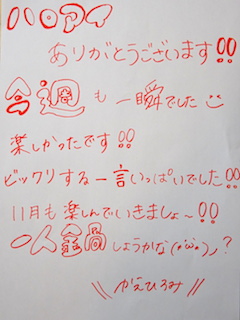 ハロアイ
ありがとうございます!!
今週も一瞬でした
楽しかったです!!
ビックリする一言いっぱいでした!!
11月も楽しんでいきましょ~!!
一人鍋しようかな(•'ω'•)ノ?
\\ かえひろみ //